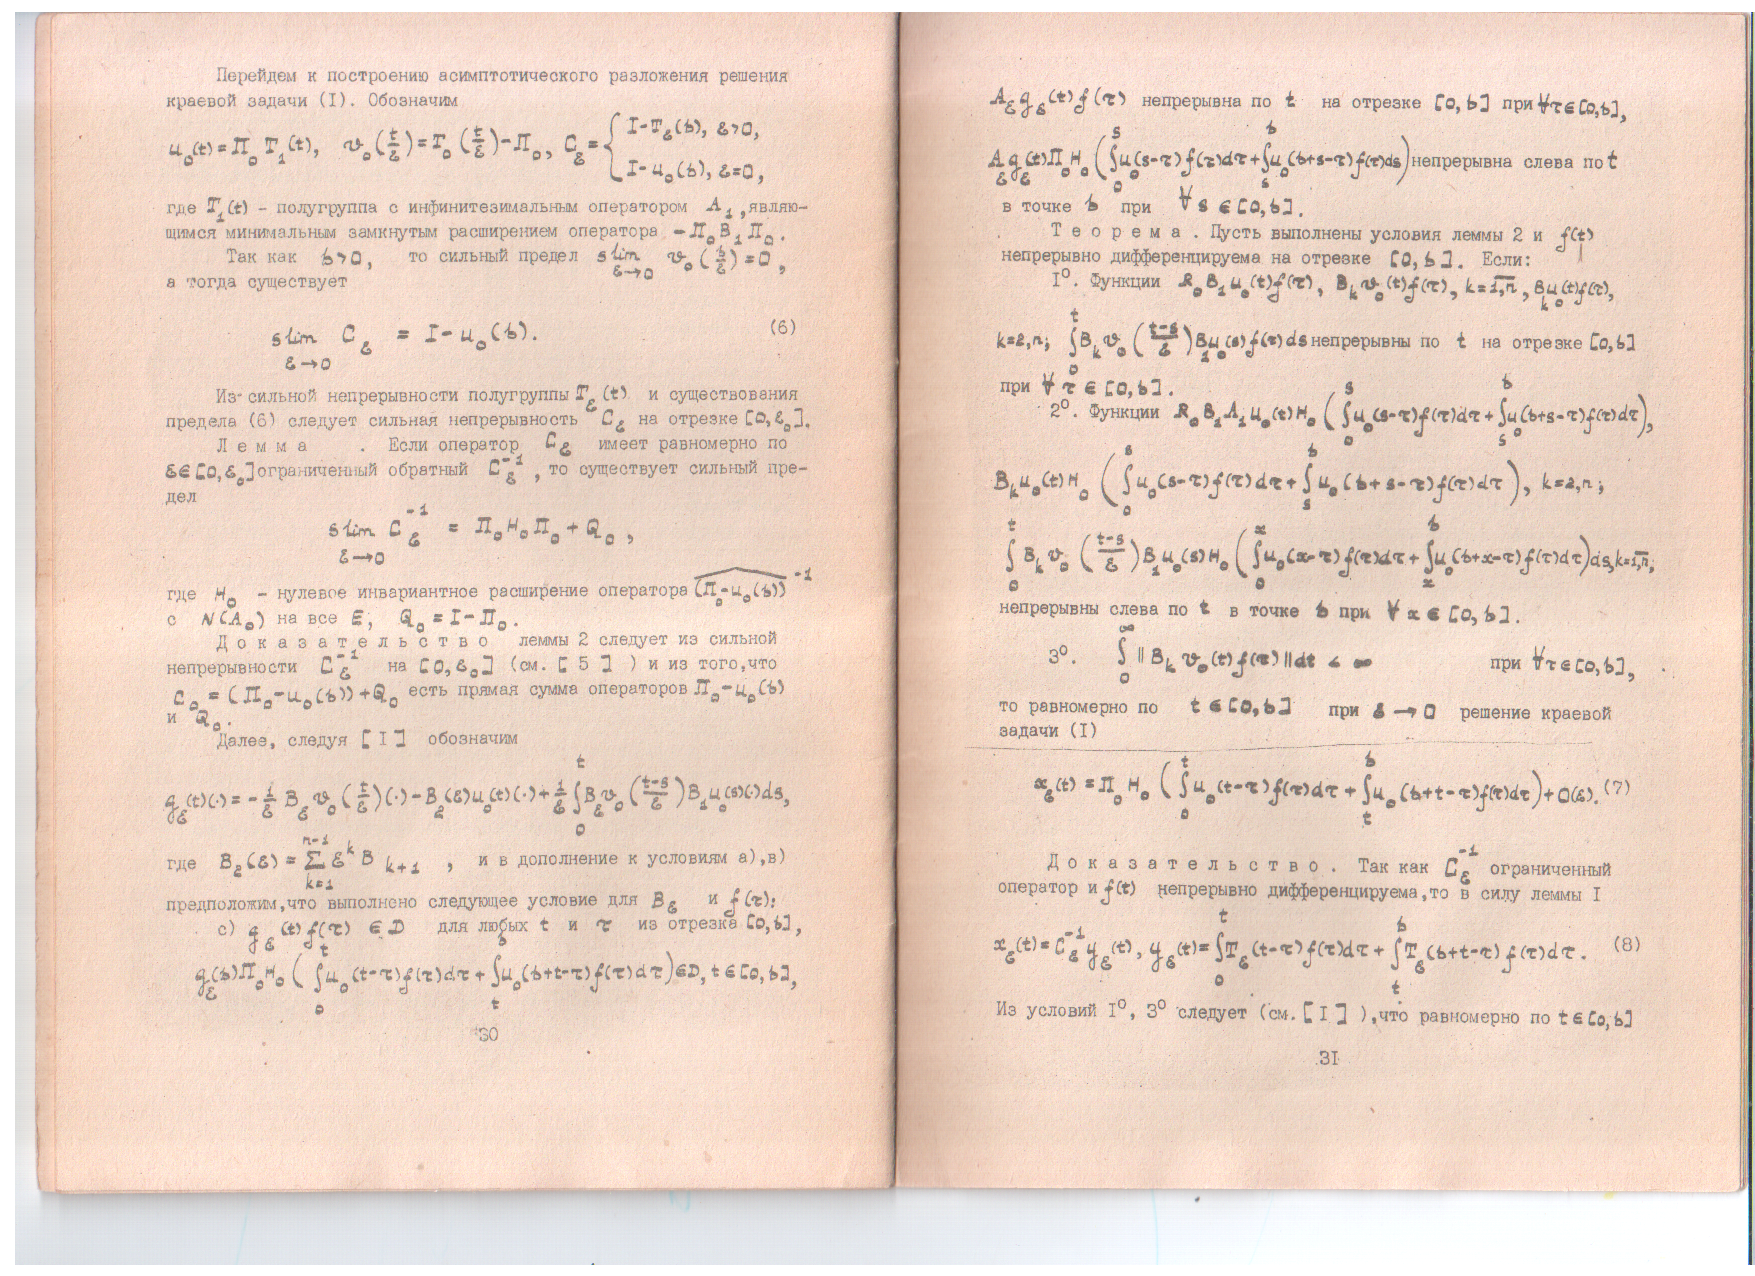 Перейдем к построению асимптотического разложения решения
краевой задачи (I). Обозначим
u₀(t)=П₀T₁(t), v₀(t/ε)=T₀(t/ε)-П₀, C_ε={ I-T_ε(b), ε>0,
I-u₀(b), ε=0,
где T₁(t) - полугруппа с инфинитезимальным оператором A₁, являю-
щимся минимальным замкнутым расширением оператора -П₀B₁П₀.
Так как b>0, то сильный предел slim_{ε→0} v₀(b/ε)=0,
а тогда существует
slim_{ε→0} C_ε = I-u₀(b). (6)
Из сильной непрерывности полугруппы T_ε(t) и существования
предела (6) следует сильная непрерывность C_ε на отрезке [0,ε₀].
Л е м м а . Если оператор C_ε имеет равномерно по
ε∈[0,ε₀] ограниченный обратный C_ε⁻¹, то существует сильный пре-
дел
slim_{ε→0} C_ε⁻¹ = П₀H₀П₀+Q₀,
где H₀ - нулевое инвариантное расширение оператора (П₀-u₀(b))⁻¹
с N(A₀) на все E, Q₀=I-П₀.
Д о к а з а т е л ь с т в о леммы 2 следует из сильной
непрерывности C_ε⁻¹ на [0,ε₀] (см. [ 5 ] ) и из того,что
C₀=(П₀-u₀(b))+Q₀ есть прямая сумма операторов П₀-u₀(b)
и Q₀.
Далее, следуя [ I ] обозначим
g_ε(t)(·)=-1/ε B_ε v₀(t/ε)(·)-B₂(ε)u₀(t)(·)+1/ε ∫₀ᵗ B_ε v₀((t-s)/ε)B₁u₀(s)(·)ds,
где B₂(ε)=∑_{k=1}^{n-1} εᵏ B_{k+1} , и в дополнение к условиям а),в)
предположим,что выполнено следующее условие для B_ε и f(τ):
с) g_ε(t)f(τ) ∈D для любых t и τ из отрезка [0,b],
g_ε(b)П₀H₀(∫₀ᵗ u₀(t-τ)f(τ)dτ+∫ₜᵇ u₀(b+t-τ)f(τ)dτ)∈D, t∈[0,b],
30
A_ε g_ε(t)f(τ) непрерывна по t на отрезке [0,b] при ∀τ∈[0,b],
A_ε g_ε(t)П₀H₀(∫₀ˢ u₀(s-τ)f(τ)dτ+∫ₛᵇ u₀(b+s-τ)f(τ)ds) непрерывна слева по t
в точке b при ∀ s∈[0,b].
Т е о р е м а . Пусть выполнены условия леммы 2 и f(t)
непрерывно дифференцируема на отрезке [0,b]. Если:
1⁰. Функции R₀B₁u₀(t)f(τ), B_k v₀(t)f(τ), k=1,n, B_k u₀(t)f(τ),
k=2,n; ∫₀ᵗ B_k v₀((t-s)/ε)B₁u₀(s)f(τ)ds непрерывны по t на отрезке [0,b]
при ∀ τ∈[0,b].
2⁰. Функции R₀B₁A₁u₀(t)H₀(∫₀ˢ u₀(s-τ)f(τ)dτ+∫ₛᵇ u₀(b+s-τ)f(τ)dτ),
B_k u₀(t)H₀(∫₀ˢ u₀(s-τ)f(τ)dτ+∫ₛᵇ u₀(b+s-τ)f(τ)dτ), k=2,n;
∫₀ᵗ B_k v₀((t-s)/ε)B₁u₀(s)H₀(∫₀ˣ u₀(x-τ)f(τ)dτ+∫ₓᵇ u₀(b+x-τ)f(τ)dτ)ds, k=1,n;
непрерывны слева по t в точке b при ∀ x∈[0,b].
3⁰. ∫₀^∞ ‖B_k v₀(t)f(τ)‖dt < ∞ при ∀τ∈[0,b],
то равномерно по t∈[0,b] при ε→0 решение краевой
задачи (I)
x_ε(t)=П₀H₀(∫₀ᵗ u₀(t-τ)f(τ)dτ+∫ₜᵇ u₀(b+t-τ)f(τ)dτ)+O(ε). (7)
Д о к а з а т е л ь с т в о . Так как C_ε⁻¹ ограниченный
оператор и f(t) непрерывно дифференцируема,то в силу леммы I
x_ε(t)=C_ε⁻¹y_ε(t), y_ε(t)=∫₀ᵗ T_ε(t-τ)f(τ)dτ+∫ₜᵇ T_ε(b+t-τ)f(τ)dτ. (8)
Из условий I⁰, 3⁰ следует (см.[ I ] ),что равномерно по t∈[0,b]
3I